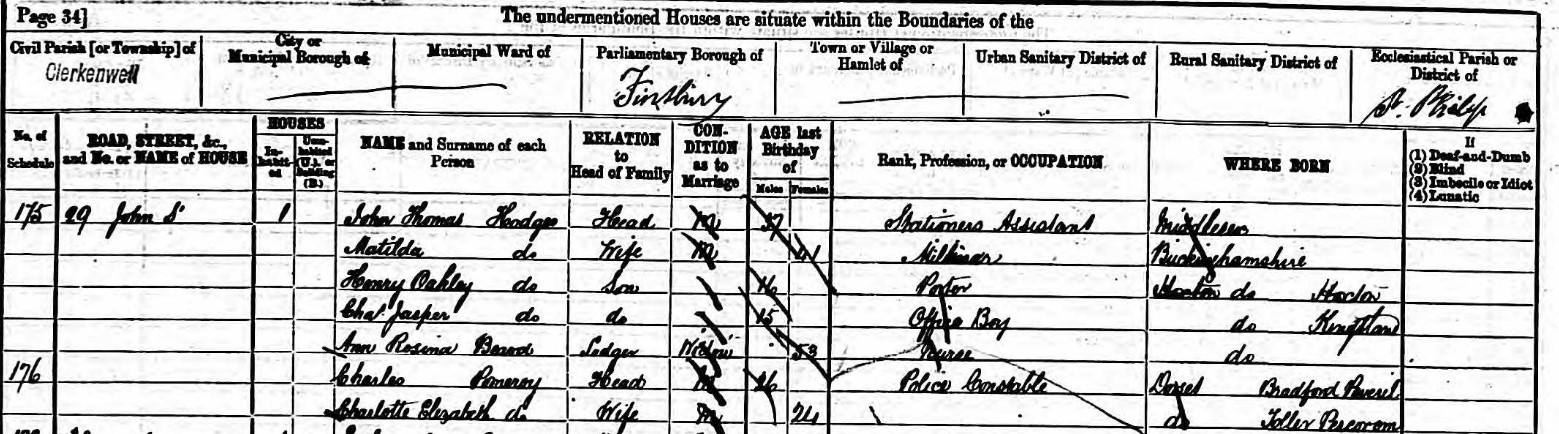 Page 34]
The undermentioned Houses are situate within the Boundaries of the
Civil Parish [or Township] of Clerkenwell
City or Municipal Borough of
Municipal Ward of
Parliamentary Borough of Finsbury
Town or Village or Hamlet of
Urban Sanitary District of
Rural Sanitary District of
Ecclesiastical Parish or District of St. Philip
No. of Schedule
ROAD, STREET, &c., and No. or NAME of HOUSE
HOUSES
In-habit-ed
Unin-habited (U.), or Building (B.)
NAME and Surname of each Person
RELATION to Head of Family
CON-DITION as to Marriage
AGE last Birthday of
Males Females
Rank, Profession, or OCCUPATION
WHERE BORN
If
(1) Deaf-and-Dumb
(2) Blind
(3) Imbecile or Idiot
(4) Lunatic
175 29 John St 1 John Thomas Hodges Head M 37 Stationers Assistant Middlesex
Matilda do Wife M 41 Milliner Buckinghamshire
Henry Oakley do Son 16 Porter Hoxton do Hoxton
Chas Jasper do do 15 Office Boy do Kingsland
Ann Rosina Beard Lodger Widow 53 Nurse do
176 Charles Pomeroy Head M 26 Police Constable Dorset Bradford Peverel
Charlotte Elizabeth do Wife M 24 do Toller Porcorum